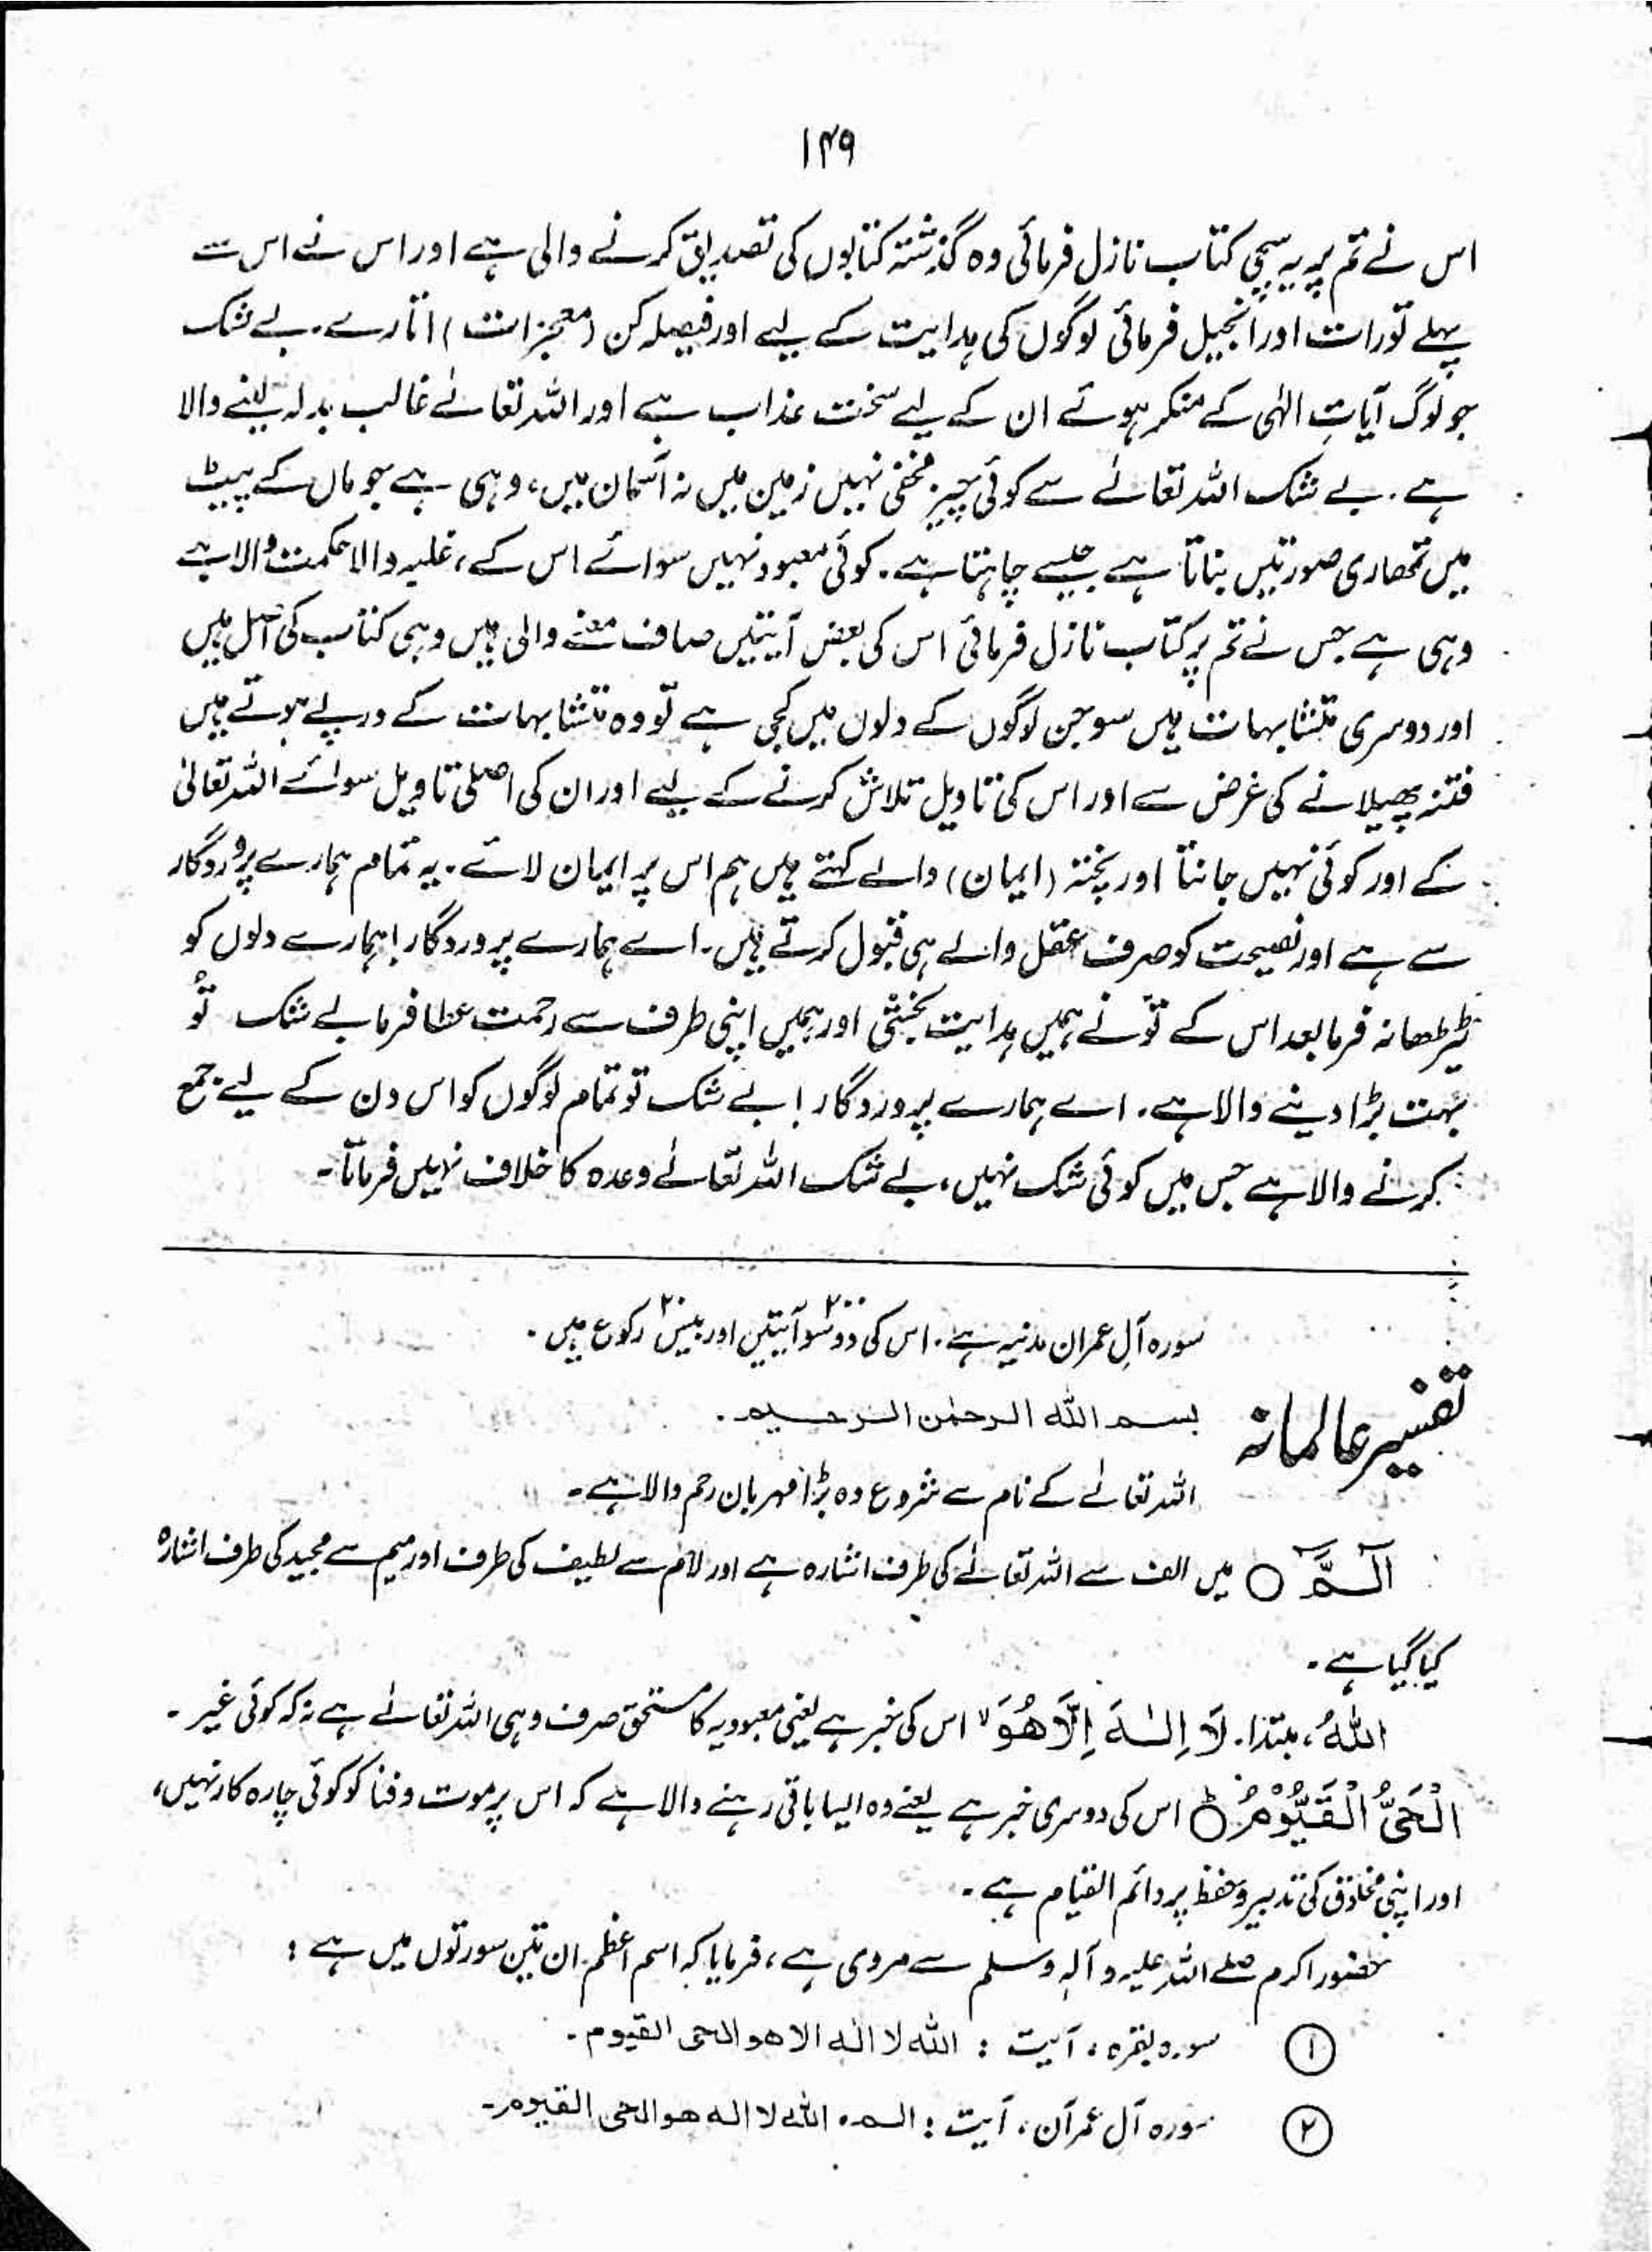 ۱۴۹
اس نے تم پر یہ سچی کتاب نازل فرمائی وہ گذشتہ کتابوں کی تصدیق کرنے والی ہے اور اس نے اس سے
پہلے تورات اور انجیل فرمائی لوگوں کی ہدایت کے لیے اور فیصلہ کن (معجزات) اتارے. بے شک
جو لوگ آیاتِ الٰہی کے منکر ہوئے ان کے لیے سخت عذاب ہے اور اللہ تعالےٰ غالب بدلہ لینے والا
ہے. بے شک اللہ تعالےٰ سے کوئی چیز مخفی نہیں زمین میں نہ آسمان میں، وہی ہے جو ماں کے پیٹ
میں تمھاری صورتیں بناتا ہے جیسے چاہتا ہے. کوئی معبود نہیں سوائے اس کے، غلبہ والا حکمت والا ہے
وہی ہے جس نے تم پر کتاب نازل فرمائی اس کی بعض آیتیں صاف معنے والی ہیں وہی کتاب کی اصل ہیں
اور دوسری متشابہات ہیں سو جن لوگوں کے دلوں میں کجی ہے تو وہ متشابہات کے درپے ہوتے ہیں
فتنہ پھیلانے کی غرض سے اور اس کی تاویل تلاش کرنے کے لیے اور ان کی اصلی تاویل سوائے اللہ تعالیٰ
کے اور کوئی نہیں جانتا اور پختہ (ایمان) والے کہتے ہیں ہم اس پر ایمان لائے. یہ تمام ہمارے پروردگار
سے ہے اور نصیحت کو صرف عقل والے ہی قبول کرتے ہیں. اے ہمارے پروردگار! ہمارے دلوں کو
ٹیڑھا نہ فرما بعد اس کے تو نے ہمیں ہدایت بخشی اور ہمیں اپنی طرف سے رحمت عطا فرما بے شک تُو
بہت بڑا دینے والا ہے. اے ہمارے پروردگار! بے شک تو تمام لوگوں کو اس دن کے لیے جمع
کرنے والا ہے جس میں کوئی شک نہیں، بے شک اللہ تعالےٰ وعدہ کا خلاف نہیں فرماتا۔
سورہ آلِ عمران مدنیہ ہے. اس کی دو سو ۲۰۰ آیتیں اور بیس ۲۰ رکوع ہیں.
تفسیر عالمانہ
بسم اللہ الرحمٰن الرحیم.
اللہ تعالےٰ کے نام سے شروع وہ بڑا مہربان رحم والا ہے۔
الٓـمّٓ ○ میں الف سے اللہ تعالےٰ کی طرف اشارہ ہے اور لام سے لطیف کی طرف اور میم سے مجید کی طرف اشارہ
کیا گیا ہے۔
اللّٰہُ، مبتدا. لَآ اِلٰـہَ اِلَّا ھُوَ لا اس کی خبر ہے یعنی معبودیہ کا مستحق صرف وہی اللہ تعالےٰ ہے نہ کہ کوئی غیر۔
الْحَیُّ الْقَیُّوْمُ ○ؕ اس کی دوسری خبر ہے یعنے وہ ایسا باقی رہنے والا ہے کہ اس پر موت و فنا کو کوئی چارہ کار نہیں،
اور اپنی مخلوق کی تدبیر و حفظ پر دائم القیام ہے۔
حضور اکرم صلے اللہ علیہ و آلہٖ وسلم سے مروی ہے، فرمایا کہ اسم اعظم ان تین سورتوں میں ہے :
① سورہ بقرہ، آیت : اللہ لا الٰہ الا ھو الحی القیوم۔
② سورہ آل عمرآن، آیت : الـم. اللہ لا الہ ھو الحی القیوم۔